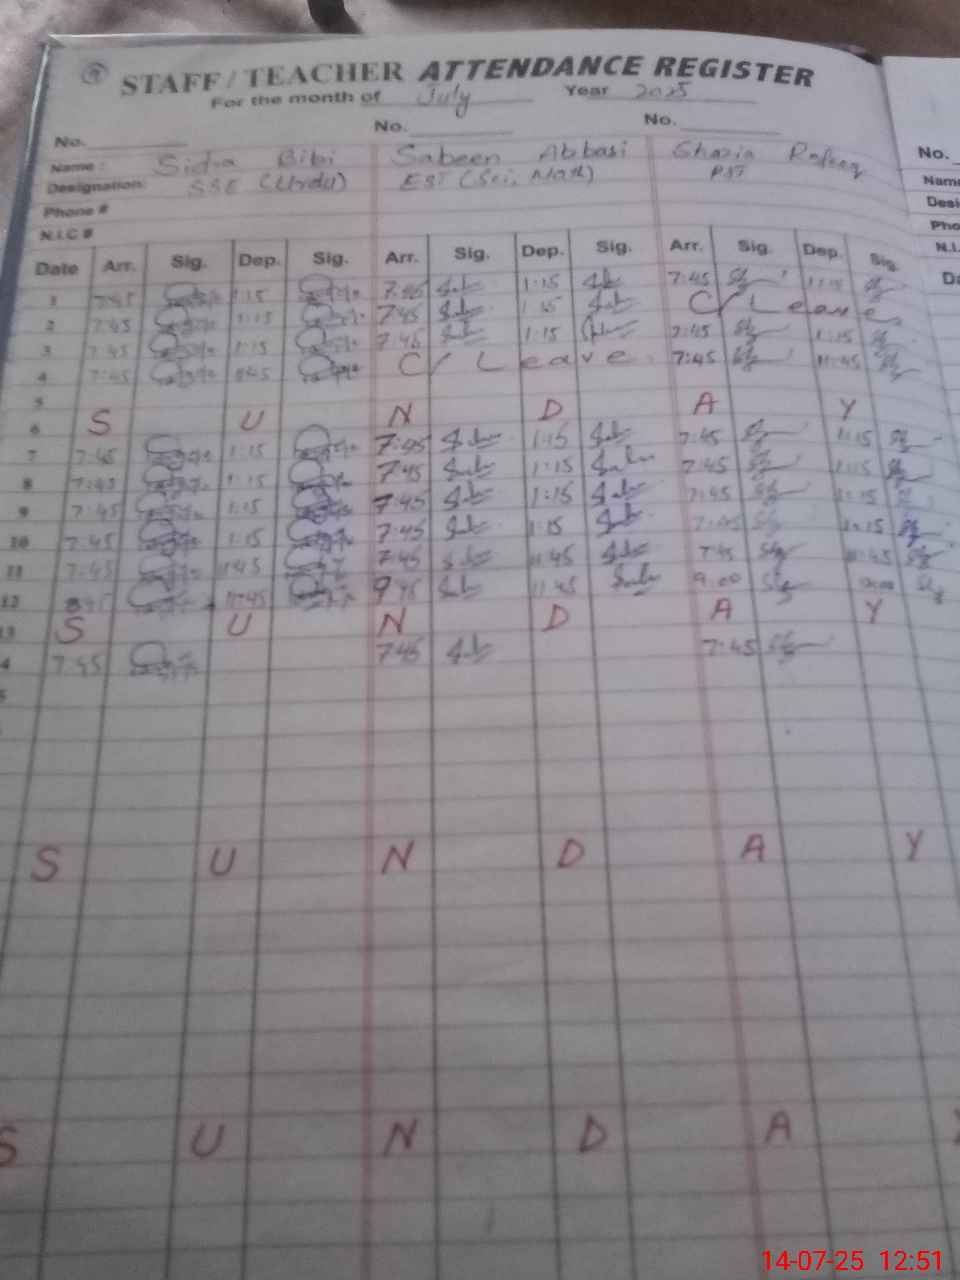 STAFF/TEACHER ATTENDANCE REGISTER
For the month of July Year 2025
No. No. No. No.
Name: Sidra Bibi Sabeen Abbasi Shazia Rafeeq Name
Designation: SSE (Urdu) EST (Sci, Math) PST Desi
Phone # Pho
N.I.C # N.I.
Date Arr. Sig. Dep. Sig. Arr. Sig. Dep. Sig. Arr. Sig. Dep. Sig. Da
1 7:45 1:15 7:45 1:15 7:45 1:15
2 7:45 1:15 7:45 1:15 C/ Leave
3 7:45 1:15 7:45 1:15 7:45 1:15
4 7:45 11:45 C/ Leave 7:45 11:45
5
6 S U N D A Y
7 7:45 1:15 7:45 1:15 7:45 1:15
8 7:45 1:15 7:45 1:15 7:45 1:15
9 7:45 1:15 7:45 1:15 7:45 1:15
10 7:45 1:15 7:45 1:15 7:45 1:15
11 7:45 11:45 7:45 11:45 7:45 11:45
12 11:45 11:45 9:00
13 S U N D A Y
4 7:45 7:45 7:45
5
S U N D A Y
S U N D A
14-07-25 12:51